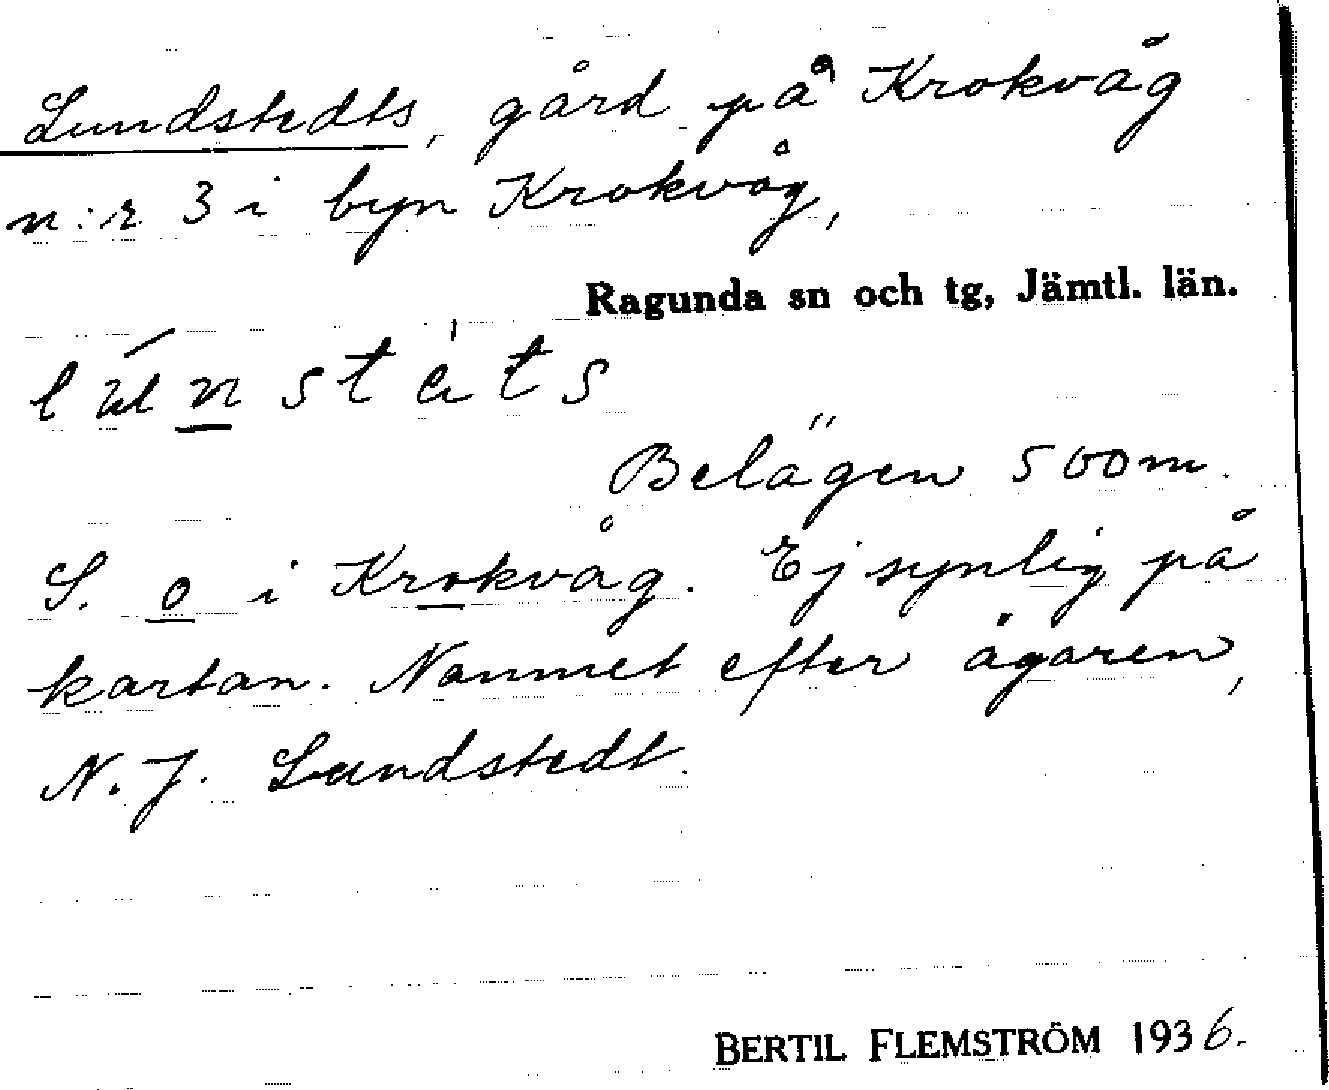 Lundstedts, gård på Krokvåg
n:r 3 i byn Krokvåg,
Ragunda sn och tg, Jämtl. län.
lúnstèts
Belägen 500m.
S. o i Krokvåg. Ej synlig på
kartan. Namnet efter ägaren,
N. J. Lundstedt.
BERTIL FLEMSTRÖM 1936.